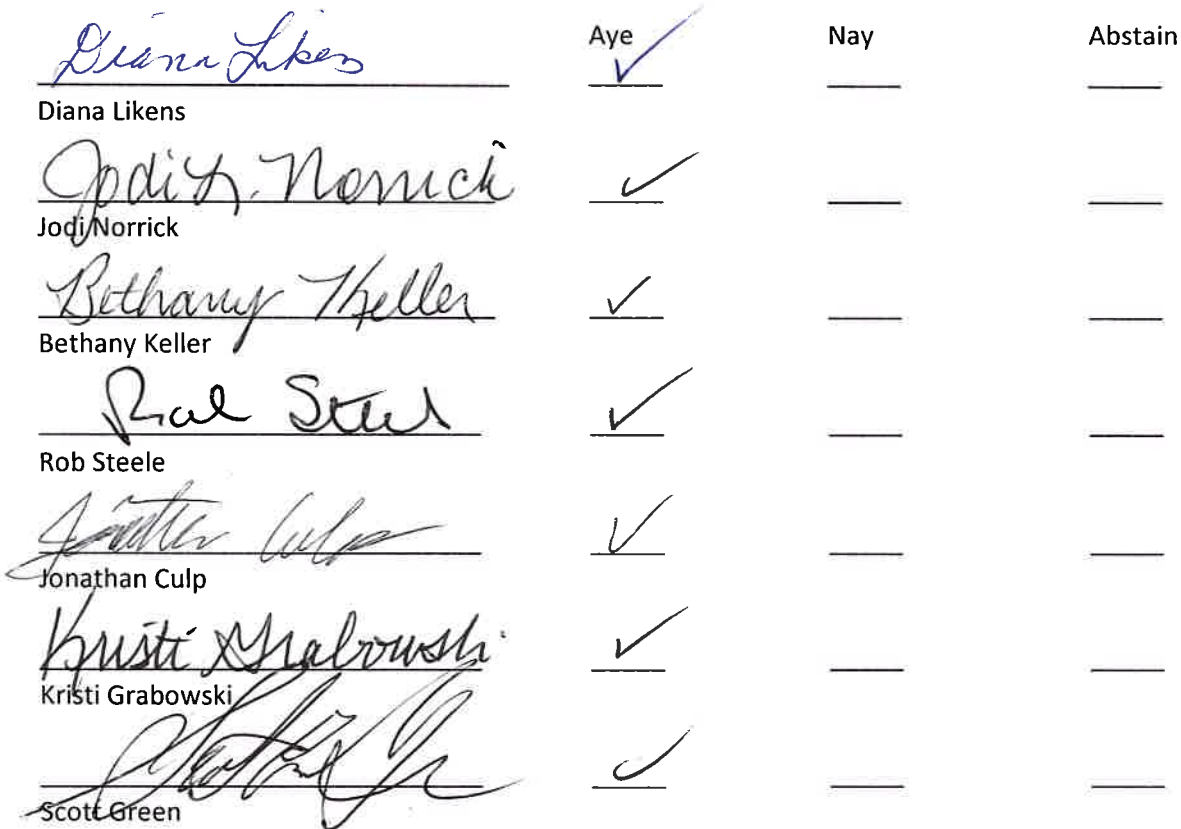 Diana Likens Aye Nay Abstain
Diana Likens
Jodi L. Norrick
Jodi Norrick
Bethany Keller
Bethany Keller
Rob Steele
Rob Steele
Jonathan Culp
Jonathan Culp
Kristi Grabowski
Kristi Grabowski
Scott Green